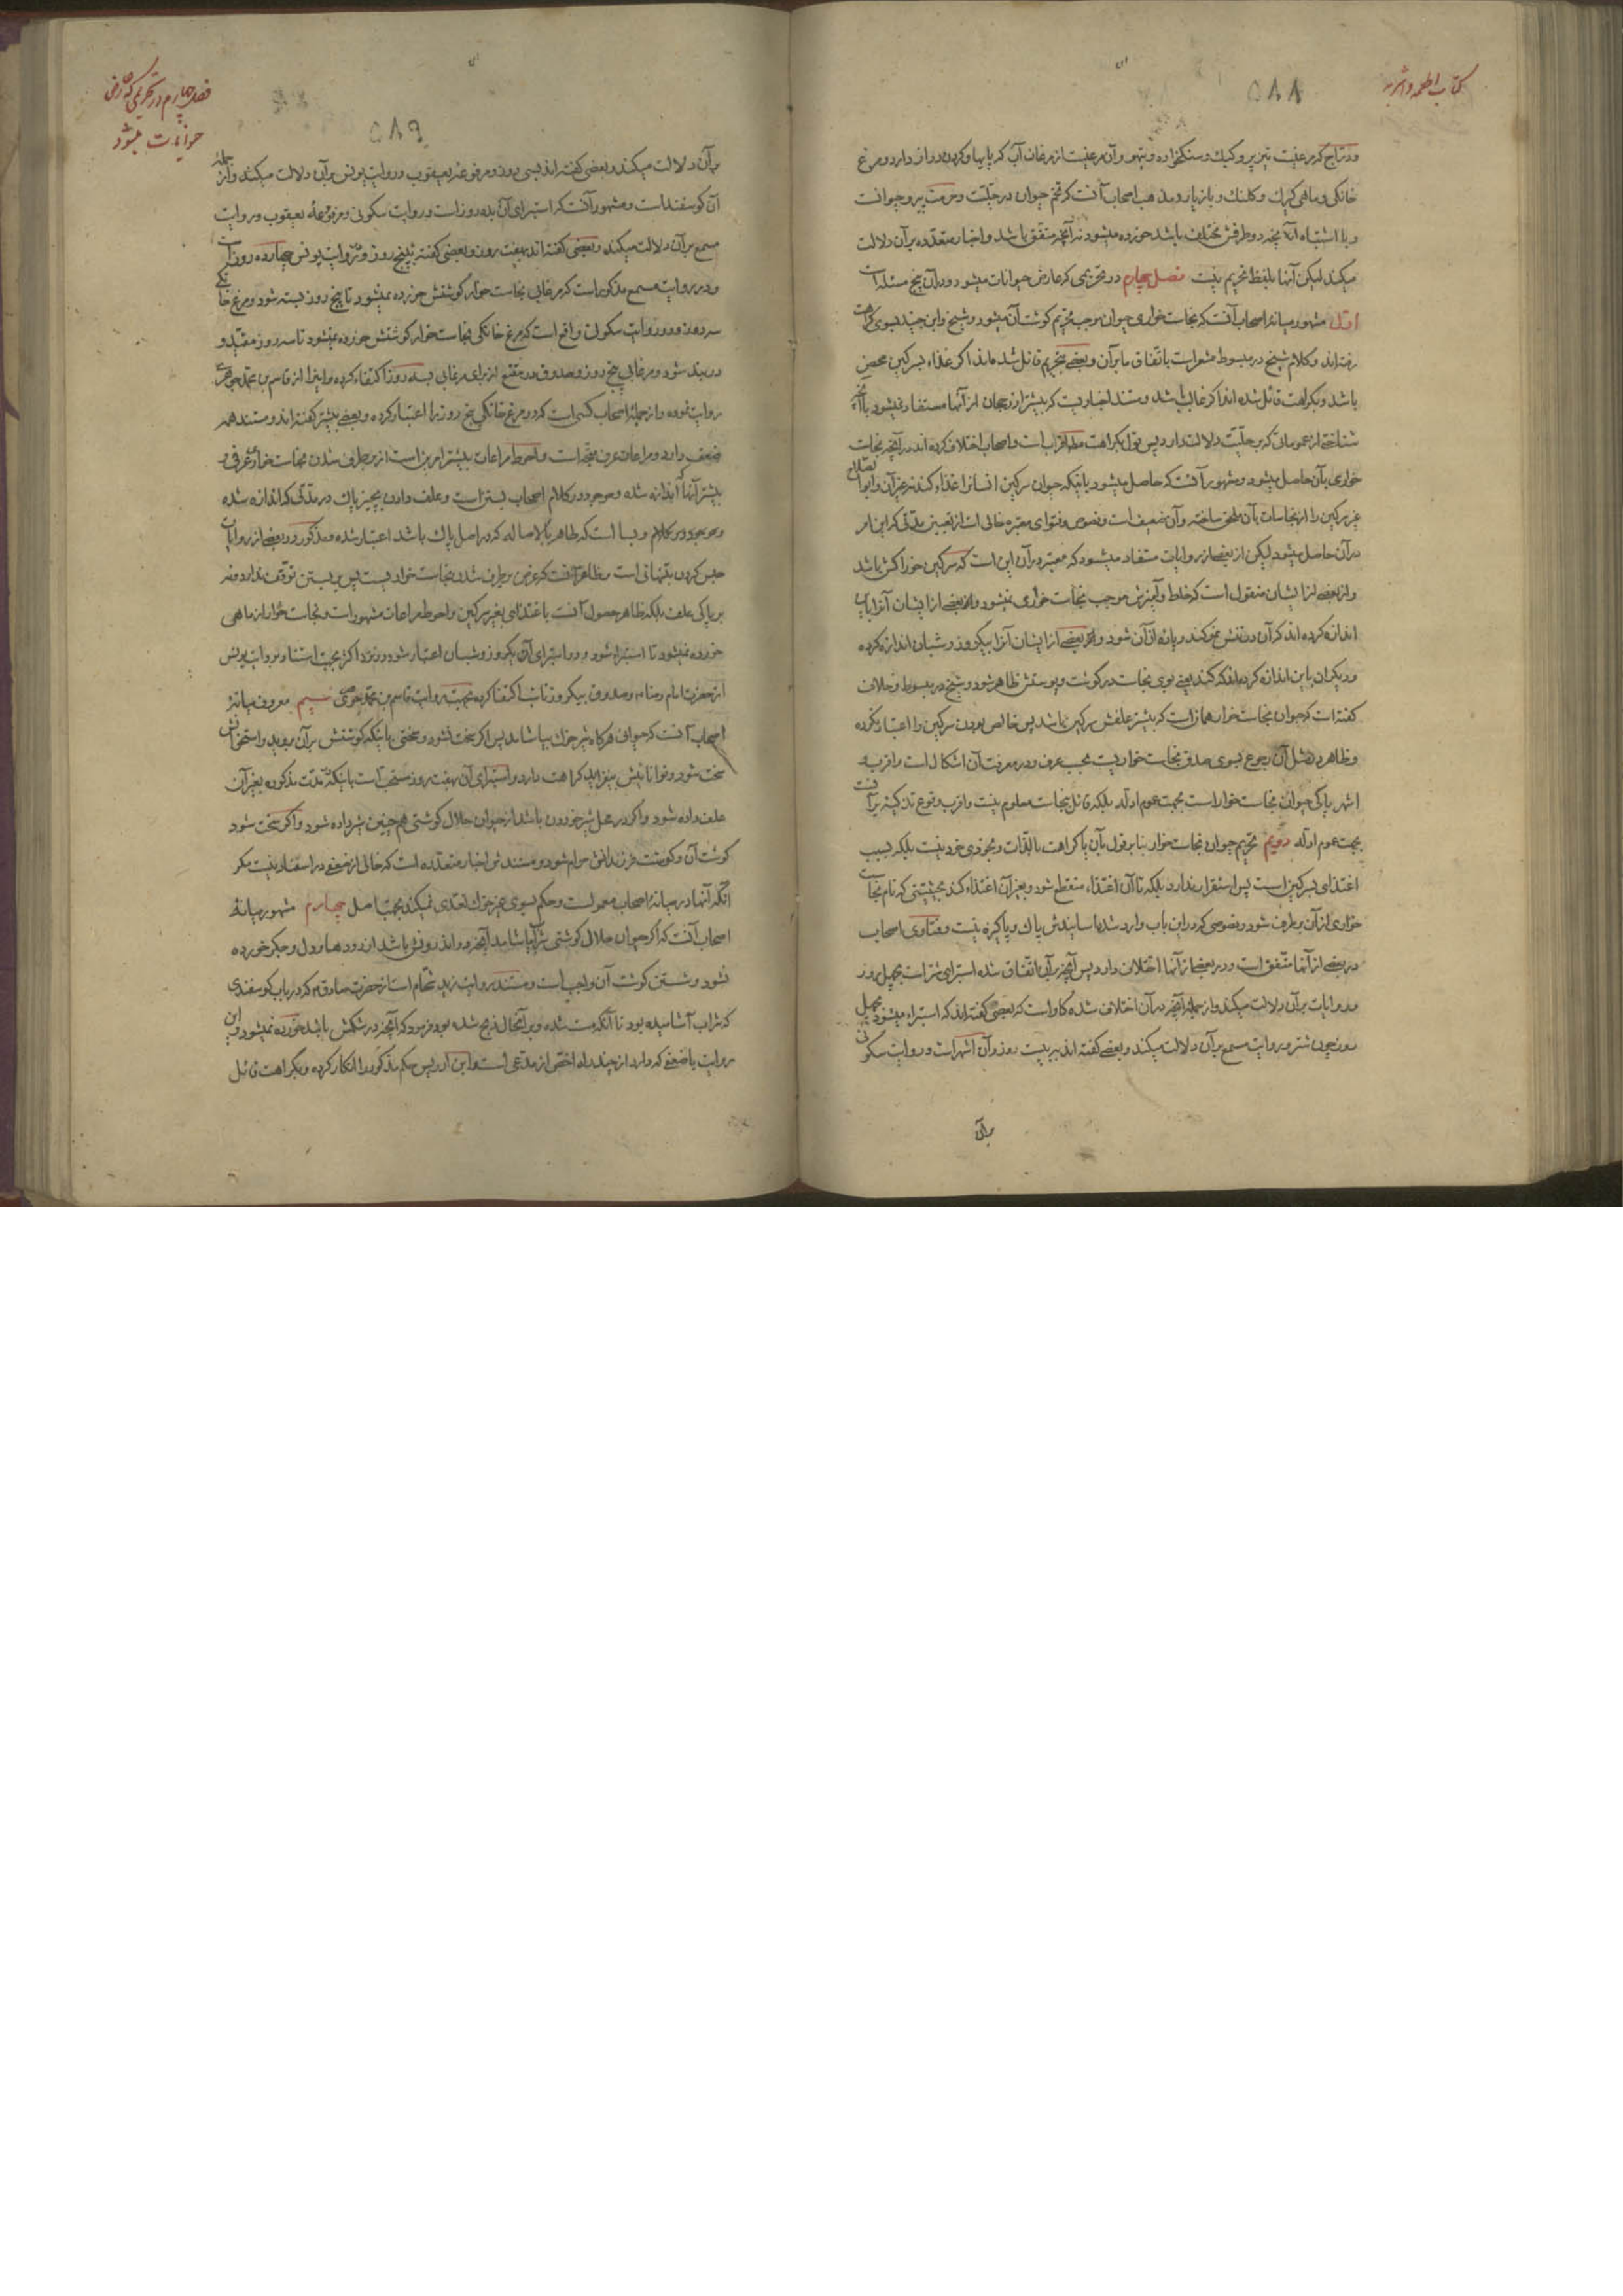 کتاب اطعمه واشربه
۵۸۸
ودراج که مرغیست تیزپر وکبک وسنگخواره وتیهو وآن مرغیست از مرغان آب که پایها وگردن دراز دارد ومرغ
خانگی وماهی وکلنک وباز یار ومذهب اصحاب آنست که تخم حیوان در حلیت وحرمت پیرو حیوانست
وبا اشتباه آنها آنچه دو طرفش مختلف باشد خورده میشود نه آنچه متفق باشد واخبار متعدده برآن دلالت
میکند لیکن آنها بلفظ تحریم نیست فصل چهارم در تحریمی که عارض حیوانات میشود ودرآن پنج مسئله است
اول مشهور میانهٔ اصحاب آنست که نجاست خواری حیوان موجب تحریم گوشت آن میشود وشیخ وابن جنید بسوی کراهت
رفته‌اند وکلام شیخ در مبسوط مشعر است باتفاق ما برآن وبعضی بتحریم قائل شده‌اند اگر غذاء سرکین محض
باشد وبکراهت قائل شده‌اند اگر غالب باشد ومستند اخباریست که بیشتر از رجحان از آنها مستفاد نمیشود با آنچه
شناختی از عموماتی که بر حلیت دلالت دارد پس قول بکراهت اقرب است واصحاب اختلاف کرده‌اند در آنچه نجاست
خواری بآن حاصل میشود ومشهور آنست که حاصل میشود باینکه حیوان سرکین انسانرا غذاء کند نه غیر آن وابوالصلاح
غیر سرکین را از نجاسات بآن ملحق ساخته وآن ضعیف است ونصوص وفتوای معتبره خالی است از تعیین مدتی که این امر
درآن حاصل میشود لیکن از بعضی از روایات مستفاد میشود که معتبر درآن این است که سرکین خوراکش باشد
واز بعضی از ایشان منقول است که خلط وآمیزش موجب نجاست خواری نمیشود وبعضی از ایشان آنرا باین
اندازه کرده‌اند که آن در تنش نمو کند وپارهٔ از آن شود وبعضی از ایشان آنرا بیکروز وشبان اندازه کرده
ودیگران باین اندازه کرده‌اند که کند یعنی بوی نجاست در گوشت وپوستش ظاهر شود وشیخ در مبسوط وخلاف
گفته است که حیوان نجاست خوار همان است که بیشتر علفش سرکین باشد پس خالص بودن سرکین را اعتبار نکرده
وظاهر در مثل آن رجوع بسوی صدق نجاست خواریست بحسب عرف ودر معرفت آن اشکال است واقرب و
اشهر پاکی حیوان نجاست خوار است بجهت عموم ادله بلکه قائل بنجاست معلوم نیست واقرب وقوع تذکیه برآنست
بجهت عموم ادله دویم تحریم حیوان نجاست خوار بنا بر قول بآن یا کراهت بالذات وبخودی خود نیست بلکه بسبب
اغتذای بسرکین است پس استقرار ندارد بلکه تا آن اغتذاء منقطع شود وبغیر آن اغتذاء کند بحیثیتی که نام نجاست
خواری از آن برطرف شود ونصوصی که در این باب وارد شده اسانیدش پاک وپاکیزه نیست وفتاوی اصحاب
در بعضی از آنها متفق است ودر بعضی از آنها اختلاف دارد پس آنچه برآن اتفاق شده استبرای شتر است بچهل روز
وروایات برآن دلالت میکند واز جملهٔ آنچه درآن اختلاف شده گاو است که بعضی گفته‌اند که استبراء میشود بچهل
روز چون شتر وروایت مسمع برآن دلالت میکند وبعضی گفته‌اند به بیست روز وآن اشهر است وروایت سکونی
برآن
فصل چهارم در تحریمی که عارض
حیوانات میشود
۵۸۹
برآن دلالت میکند وبعضی گفته‌اند بسی روز ومرفوعهٔ یعقوب وروایت یونس برآن دلالت میکند واز جملهٔ
آن گوسفند است ومشهور آنست که استبرای آن بده روز است وروایت سکونی ومرفوعهٔ یعقوب وروایت
مسمع برآن دلالت میکند وبعضی گفته‌اند بهفت روز وبعضی گفته به پنج روز ودر روایت یونس چهارده روز است
ودر روایت مسمع مذکور است که مرغابی نجاست خوار گوشتش خورده نمیشود تا پنج روز بسته شود ومرغ خانگی
سه روز ودر روایت سکونی واقع است که مرغ خانگی نجاست خوار گوشتش خورده نمیشود تا سه روز مقید و
دربند شود ومرغابی پنج روز وصدوق در مقنع از برای مرغابی بسه روز اکتفاء کرده واینرا از قاسم بن محمد جوهری
روایت نموده واز جملهٔ اصحاب کسی است که در مرغ خانگی پنج روز را اعتبار کرده وبعضی بیشتر گفته‌اند ومستند همه
ضعف دارد ومراعات عرف متجه است واحوط مراعات بیشتر امرین است از برطرف شدن نجاست خواری عرفی و
بیشتر آنها که اندازه شده وموجود در کلام اصحاب بستن است وعلف دادن بچیز پاک در مدتی که اندازه شده
وموجود در کلام وبسا است که طاهر بالاصاله که در اصل پاک باشد اعتبار شده ومذکور در بعضی از روایات
حبس کردن بتنهائی است وظاهر آنست که غرض برطرف شدن نجاست خواریست پس بر بستن توقف ندارد ونه
بر پاکی علف بلکه ظاهر حصول آنست باغتذای بغیر سرکین واحوط مراعات مشهور است ونجاست خوار از ماهی
خورده نمیشود تا استبراء شود ودر استبرای آن یکروز وشبان اعتبار شود در نزد اکثر بجهت استناد بروایت یونس
از حضرت امام رضا ع وصدوق بیکروز تا شب اکتفا کرده بجهت روایت قاسم بن محمد جوهری سیم معروف میانهٔ
اصحاب آنست که حیوان هرگاه شیر خوک بیاشامد پس اگر سخت نشود وسختی باینکه گوشتش برآن بروید واستخوانش
سخت شود وتوانائیش بیفزاید کراهت دارد واستبرای آن بهفت روز مستحب است باینکه در مدت مذکوره بغیر آن
علف داده شود واگر در محل شیر خوردن باشد از حیوان حلال گوشتی هم چنین شیر داده شود واگر سخت شود
گوشت آن وگوشت فرزندانش حرام شود ومستندش اخبار متعدده است که خالی از ضعفی در اسناد نیست مگر
آنکه آنها در میانهٔ اصحاب معمول است وحکم بسوی غیر خوک تعدی نمیکند بجهت اصل چهارم مشهور میانهٔ
اصحاب آنست که اگر حیوان حلال گوشتی شراب بیاشامد آنچه در اندرونش باشد از رودها ودل وجگر خورده
نشود وشستن گوشت آن واجب است ومستند روایت زید شحام است از حضرت صادق ع که در باب گوسفندی
که شراب آشامیده بود تا آنکه مست شده وبر آنحال ذبح شده بود فرمود که آنچه در شکمش باشد خورده نمیشود واین
روایت با ضعفی که دارد از چند راه اخص از مدعی است وابن ادریس حکم مذکور را انکار کرده وبکراهت قائل